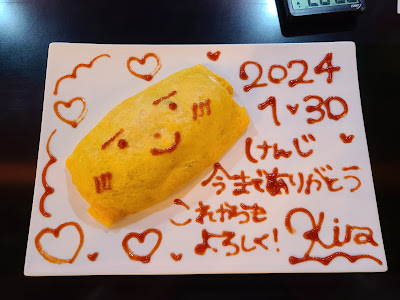 2024
1♥30
けんじ
今までありがとう
これからも
よろしく!
Kira